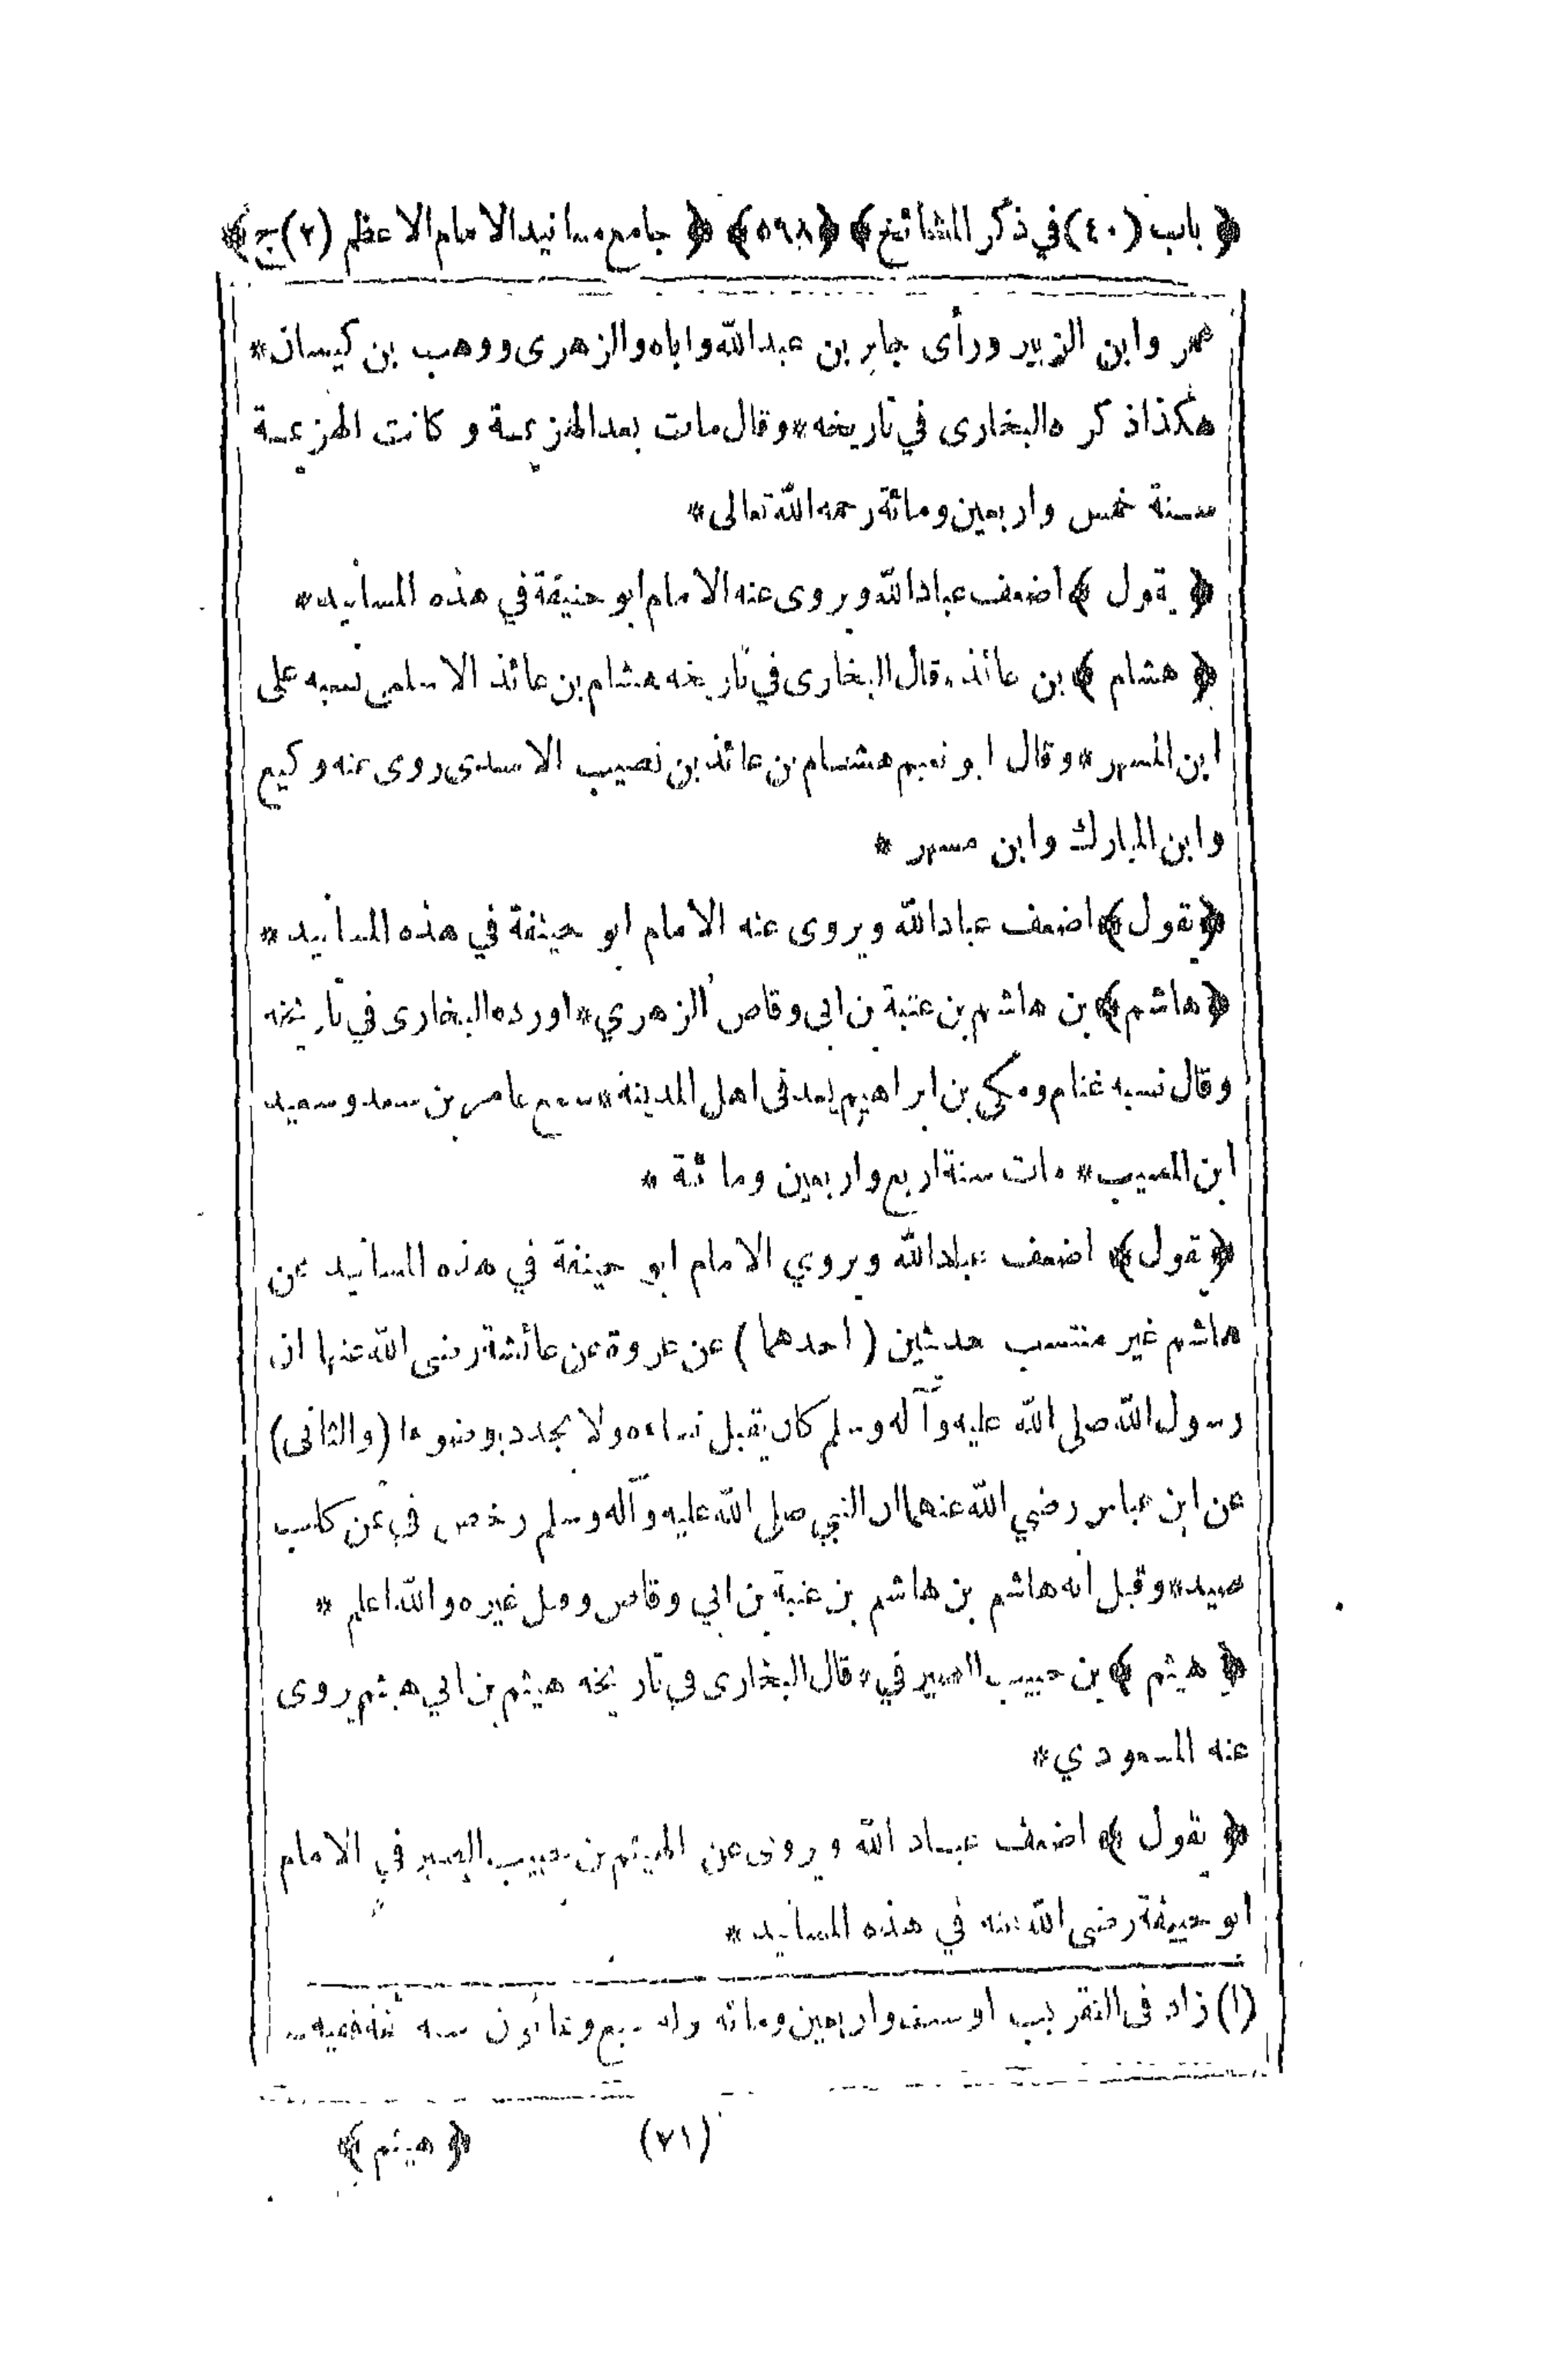 ﴿ باب (٤٠) في ذكر المشائخ ﴾ ﴿ ٥٩٨ ﴾ ﴿ جامع مسانيد الامام الاعظم (٢) ج ﴾
عمر وابن الزبير ورأى جابر بن عبدالله واباه والزهرى ووهب بن كيسان *
هكذا ذكره البخارى في تاريخه * وقال مات بعد الهزيمة وكانت الهزيمة
سنة خمس واربعين ومائة رحمه الله تعالى *
﴿ يقول ﴾ اضعف عبادالله ويروى عنه الامام ابو حنيفة في هذه المسانيد *
﴿ هشام ﴾ بن عائذ * قال البخارى في تاريخه هشام بن عائذ الاسلمى نسبه على
ابن المسهر * وقال ابو نعيم هشام بن عائذ بن نصيب الاسدى روى عنه وكيع
وابن المبارك وابن مسهر *
﴿ يقول ﴾ اضعف عبادالله ويروى عنه الامام ابو حنيفة في هذه المسانيد *
﴿ هاشم ﴾ بن هاشم بن عتبة بن ابى وقاص الزهري * اورده البخارى في تاريخه
وقال نسبه غنام ومكي بن ابراهيم يعد فى اهل المدينة * سمع عامر بن سعد وسعيد
ابن المسيب * مات سنة اربع واربعين ومائة *
﴿ يقول ﴾ اضعف عبادالله ويروي الامام ابو حنيفة في هذه المسانيد عن
هاشم غير منتسب حديثين ( احدهما ) عن عروة عن عائشة رضى الله عنها ان
رسول الله صلى الله عليه وآله وسلم كان يقبل نساءه ولا يجدد وضوءا (والثانى)
عن ابن عباس رضي الله عنهما ان النبي صلى الله عليه وآله وسلم رخص في ثمن كلب
صيد * وقيل انه هاشم بن هاشم بن عتبة بن ابي وقاص وقيل غيره والله اعلم *
﴿ هيثم ﴾ بن حبيب الصيرفي * قال البخارى في تاريخه هيثم بن ابي هيثم يروى
عنه المسعودي *
﴿ يقول ﴾ اضعف عباد الله ويروى عن الهيثم بن حبيب الصيرفي الامام
ابو حنيفة رضى الله عنه في هذه المسانيد *
(١) زاد فى التقريب او ست واربعين ومائة وله سبع وثمانون سنة ثقة فقيه
(٧١) ﴿ هيثم ﴾